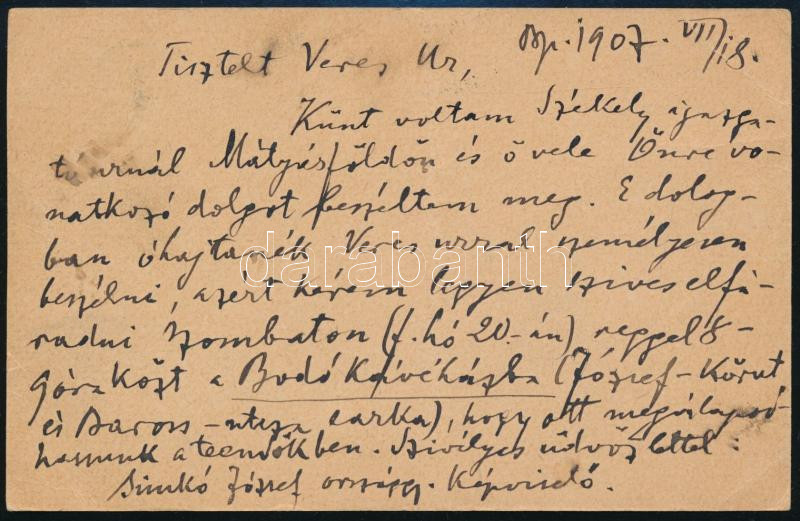 Bp. 1907. VII/18.
Tisztelt Veres Ur,
Künt voltam Székely igazga-
tó urnál Mátyásföldön és ő vele Önre vo-
natkozó dolgot beszéltem meg. E dolog-
ban óhajtanék Veres urral személyesen
beszélni, azért kérem legyen szives elfá-
radni szombaton (f. hó 20.-án) reggel 8-
góra közt a Bodó Kávéházba (József-Körut
és Baross-utcza sarka), hogy ott megállapod-
hassunk a teendőkben. Szivélyes üdvözlettel:
Simkó József országgy. Képviselő.
darabanth